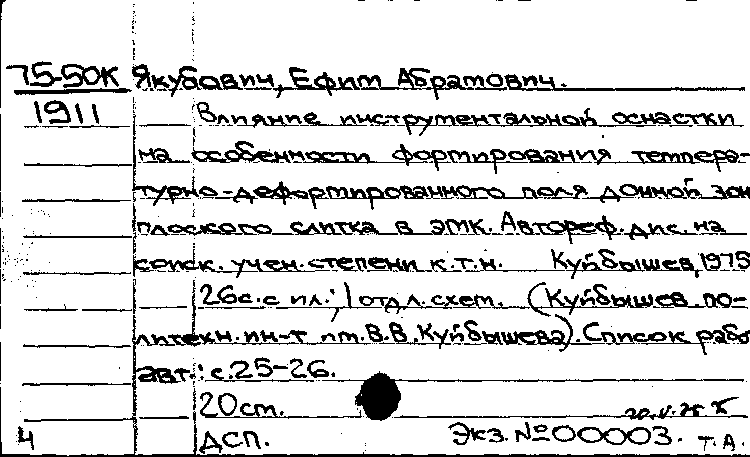 75-50К Якубович, Ефим Абрамович.
1911 Влияние инструментальной оснастки
на особенности формирования темпера-
турно-деформированного поля донной зон
плоского слитка в ЭМК. Автореф. дис. на
соиск. учен. степени к.т.н. Куйбышев, 1975
26с. с ил.; 1 отд.л. схем. (Куйбышев. по-
литехн. ин-т им. В.В. Куйбышева). Список рабо
авт.: с.25-26.
20см.
4 ДСП. Экз. №00003. Т.А.